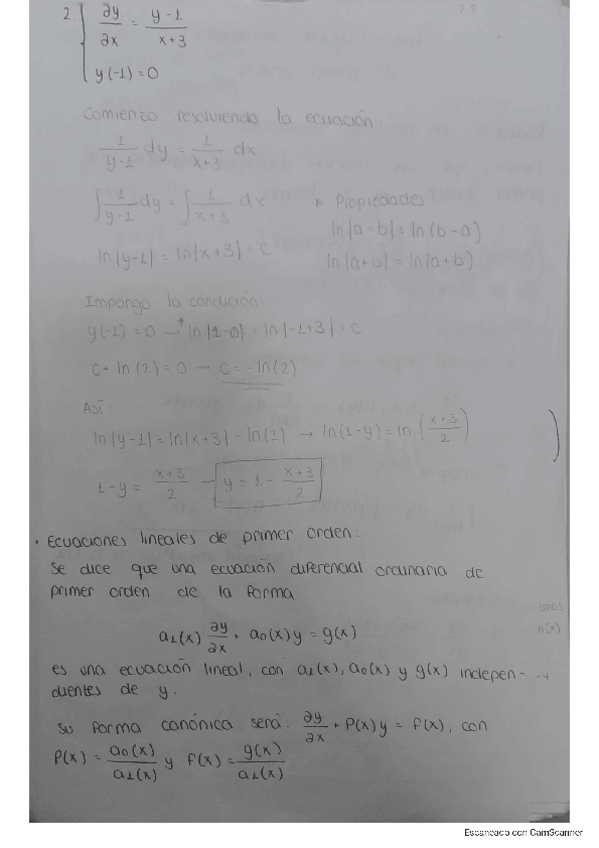 2. { ∂y/∂x = (y-1)/(x+3)
y(-1)=0
Comienzo resolviendo la ecuación:
1/(y-1) dy = 1/(x+3) dx
∫ 1/(y-1) dy = ∫ 1/(x+3) dx
* Propiedades:
ln|a-b| = ln(b-a)
ln|y-1| = ln|x+3| + C
ln|a+b| = ln(a+b)
Impongo la condición
y(-1)=0 → ln|1-0| = ln|-1+3| + C
C + ln(2) = 0 → C = -ln(2)
Así:
ln|y-1| = ln|x+3| - ln(2) → ln(1-y) = ln((x+3)/2)
1-y = (x+3)/2 → y = 1 - (x+3)/2
• Ecuaciones lineales de primer orden:
Se dice que una ecuación diferencial ordinaria de
primer orden de la forma
a₁(x) ∂y/∂x + a₀(x)y = g(x)
es una ecuación lineal, con a₁(x), a₀(x) y g(x) indepen-
dientes de y.
Su forma canónica será: ∂y/∂x + P(x)y = f(x), con
P(x) = a₀(x)/a₁(x) y f(x) = g(x)/a₁(x)
Escaneado con CamScanner